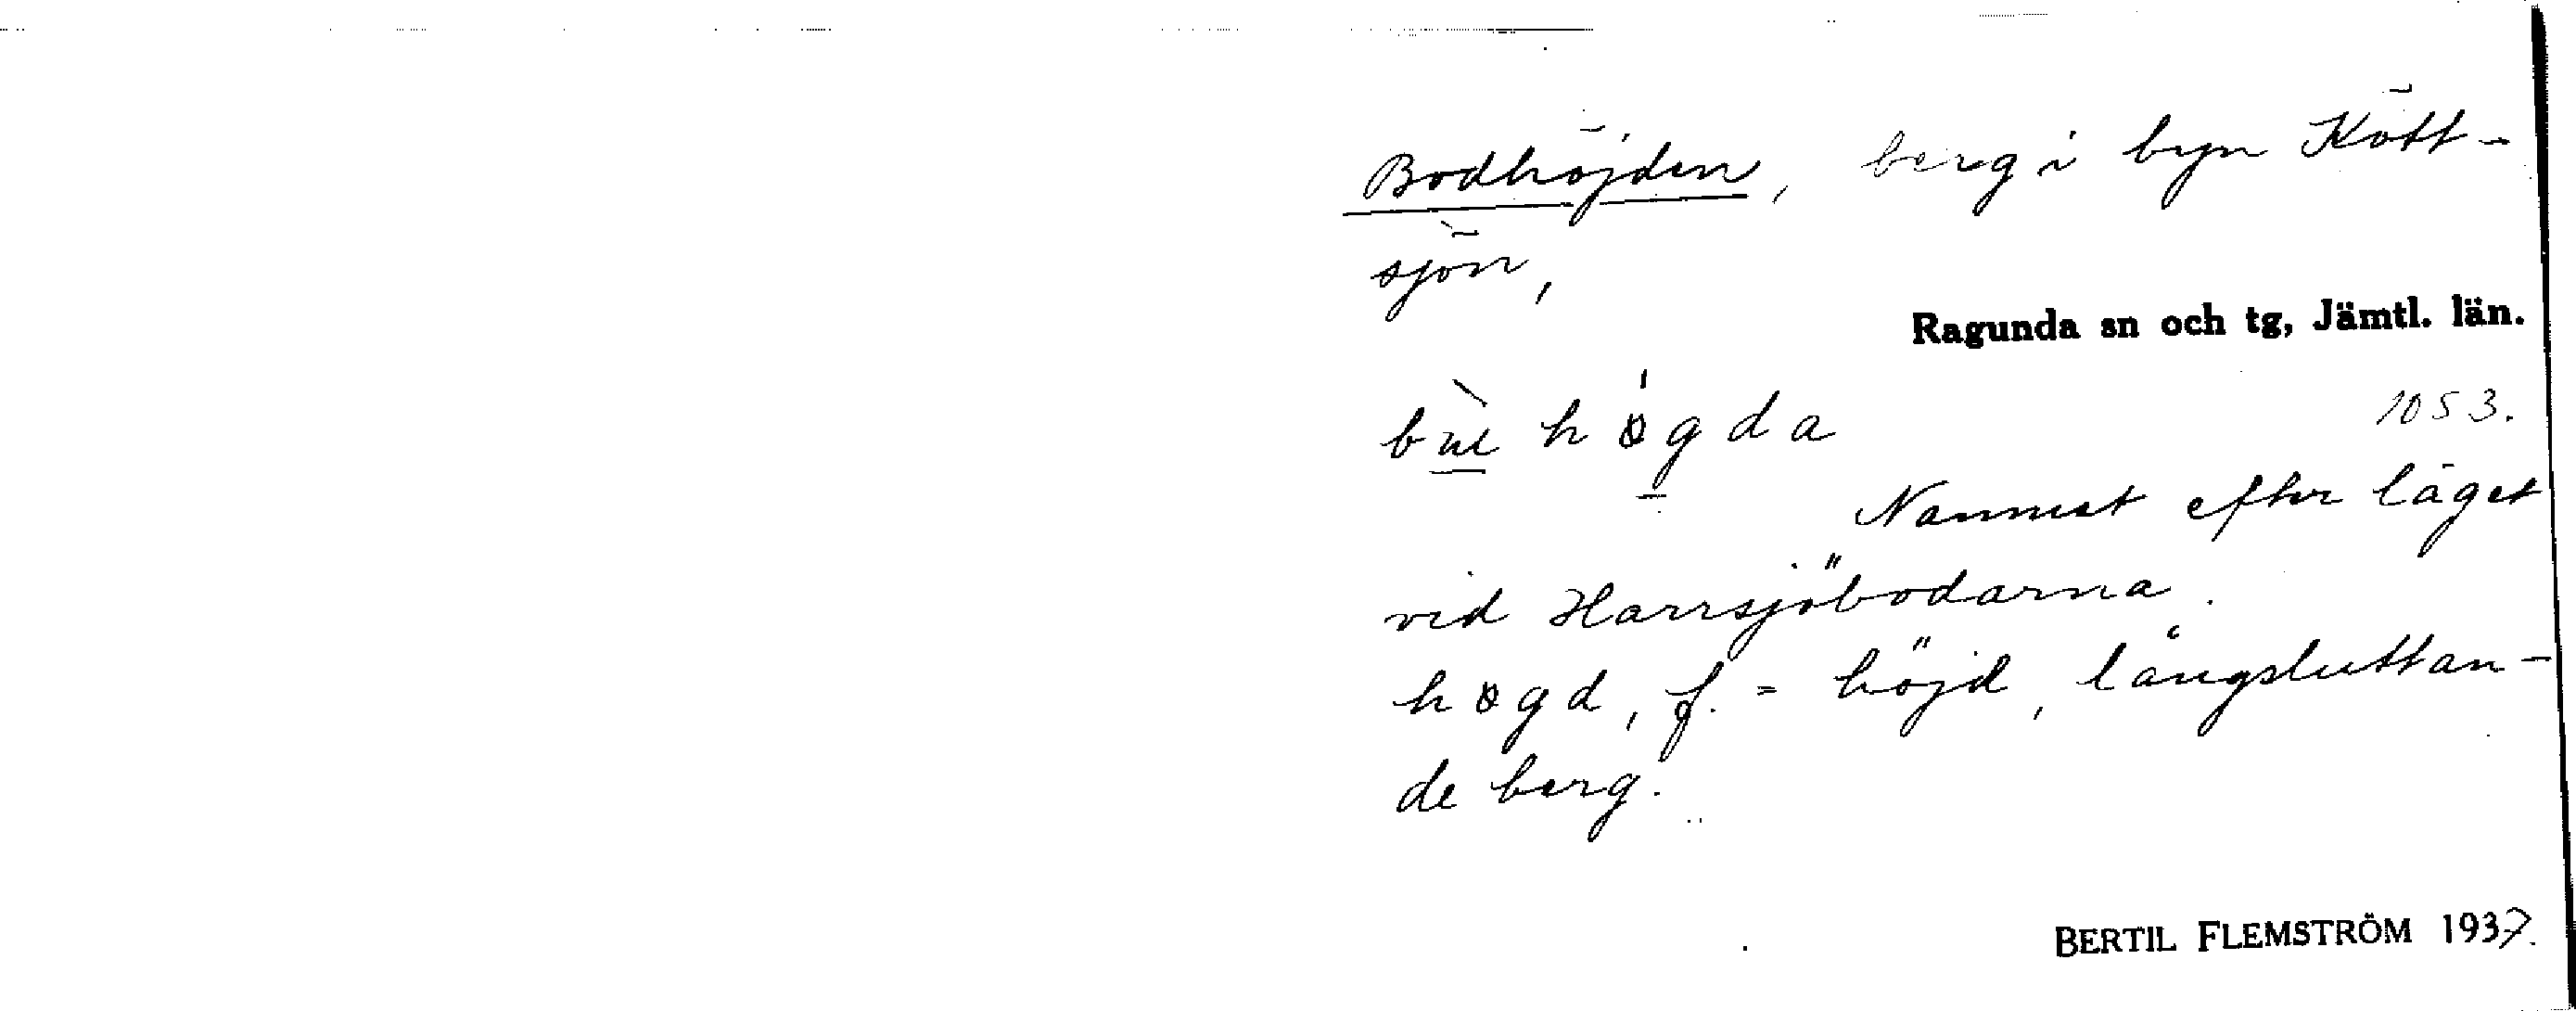 Bodhöjden, berg i byn Kött-
sjön,
Ragunda sn och tg, Jämtl. län.
1053.
Namnet efter läget
vid Harrsjöbodarna.
de berg.
höjd, långsluttan-
BERTIL FLEMSTRÖM 1937.